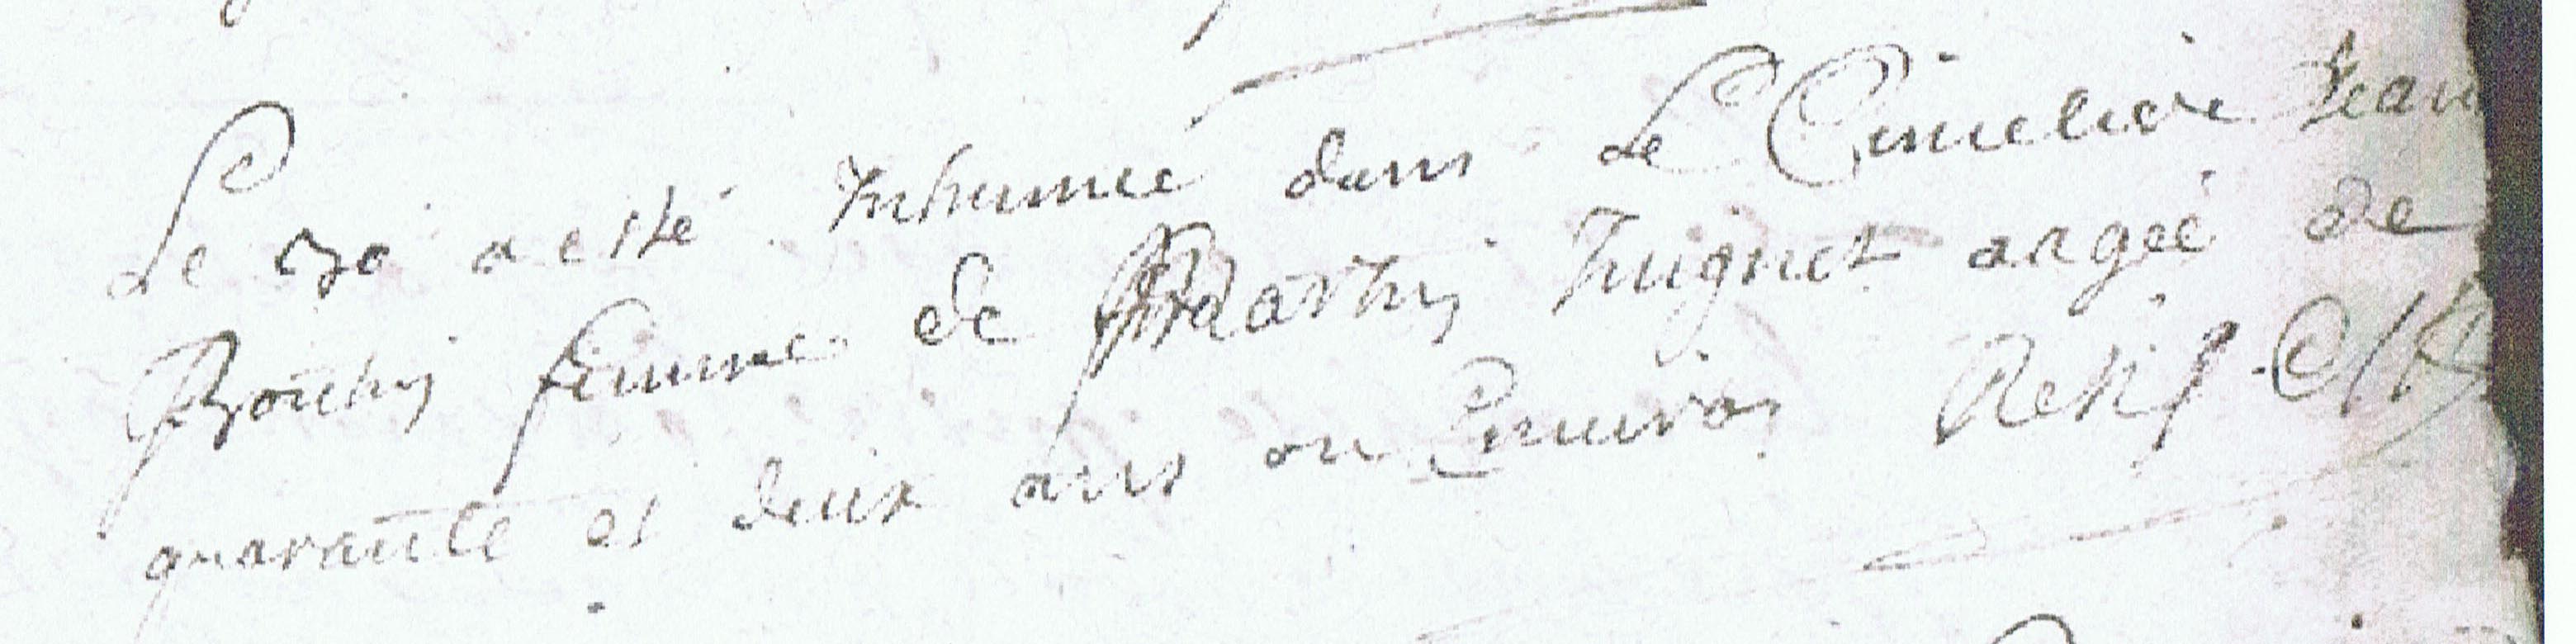 Le 30 a esté Inhumée dans Le Cimetiere Jean
femme de Martin Juignet aagée de
quarante et deux ans ou Environ